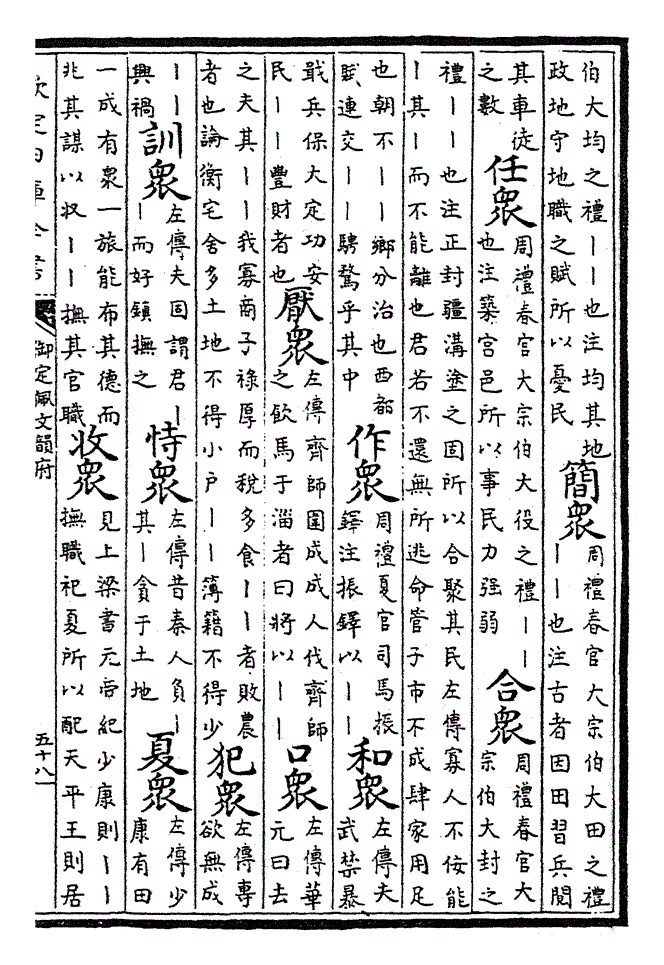 伯大均之禮丨丨也注均其地
政地守地職之賦所以憂民
簡眾
周禮春官大宗伯大田之禮
丨丨也注古者因田習兵閱
其車徒
之數
任眾
周禮春官大宗伯大役之禮丨丨
也注築宮邑所以事民力强弱
合眾
周禮春官大
宗伯大封之
禮丨丨也注正封疆溝塗之固所以合聚其民左傳寡人不佞能
丨其丨而不能離也君若不還無所逃命管子市不成肆家用足
也朝不丨丨鄉分治也西都
賦連交丨丨騁騖乎其中
作眾
周禮夏官司馬振
鐸注振鐸以丨丨
和眾
左傳夫
武禁暴
戢兵保大定功安
民丨丨豐財者也
厭眾
左傳齊師圍成成人伐齊師
之飲馬于淄者曰將以丨丨
口眾
左傳華
元曰去
之夫其丨丨我寡商子祿厚而稅多食丨丨者敗農
者也論衡宅舍多土地不得小戶丨丨簿籍不得少
犯眾
左傳專
欲無成
丨丨
興禍
訓眾
左傳夫固謂君丨
丨而好鎮撫之
恃眾
左傳昔秦人負丨
其丨貪于土地
夏眾
左傳少
康有田
一成有衆一旅能布其德而
兆其謀以收丨丨撫其官職
收眾
見上梁書元帝紀少康則丨丨
撫職祀夏所以配天平王則居
欽定四庫全書
御定佩文韻府
五十八